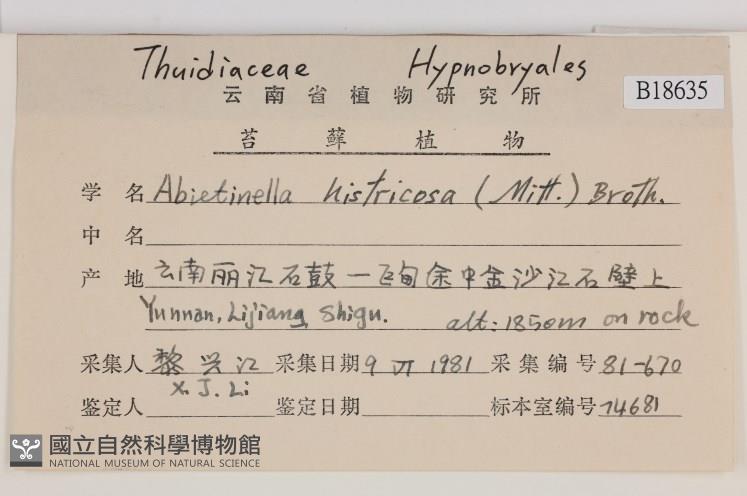 Thuidiaceae Hypnobryales
云南省植物研究所
B18635
苔藓植物
学名 Abietinella histricosa (Mitt.) Broth.
中名
产地 云南丽江石鼓一巨甸途中金沙江石壁上
Yunnan, Lijiang, Shigu. alt: 1850m on rock
采集人 黎兴江 采集日期 9 VI 1981 采集编号 81-670
X. J. Li
鉴定人 鉴定日期 标本室编号 74681
國立自然科學博物館
NATIONAL MUSEUM OF NATURAL SCIENCE